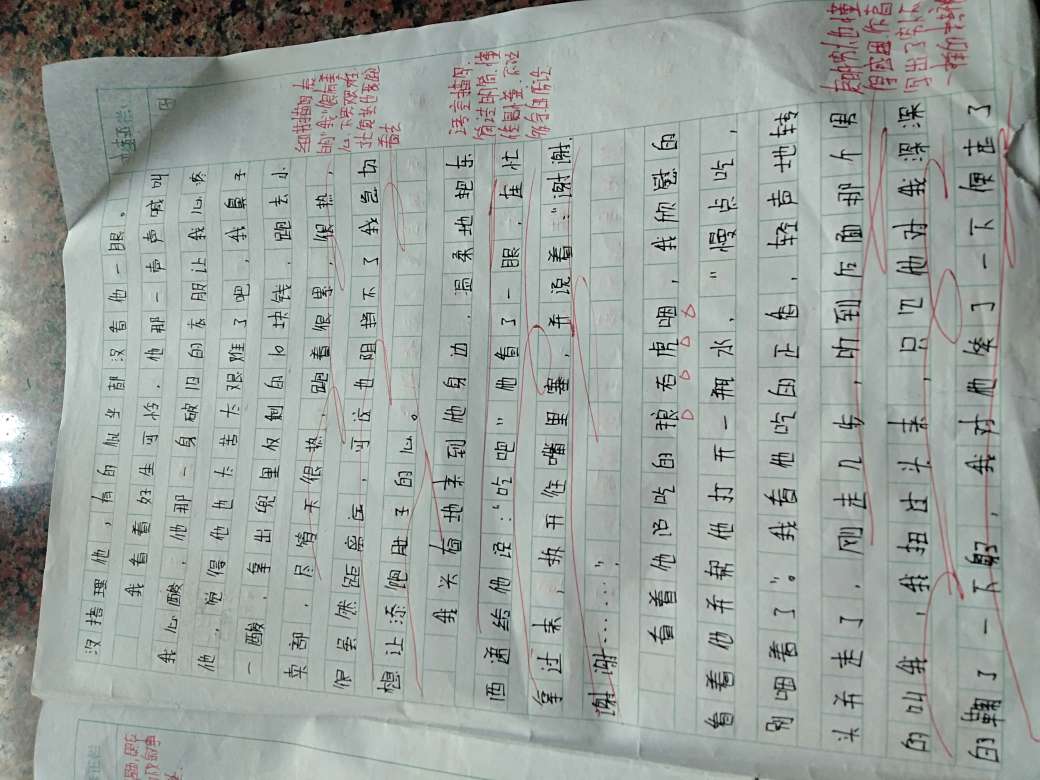 没搭理他,有的似乎都没看他一眼。
我看着好生可怜,他那一声声喊叫
我心酸,他那一身破旧的衣服让我心疼
他,觉得他也太苦太艰难了吧,我鼻子
一酸,拿出兜里仅剩的10块钱,跑去小
卖部,尽管天很热,跑着很累,很热,
但尝然距离远,可这也阻挡不了我急切
想让添饱肚子的心。
我兴奋地来到他身边,温柔地把东
西递给他说:“吃吧”他看了一眼,连忙
拿过来,拆开往嘴里塞,弄说着:“谢谢,
谢谢……”。
看着他沼吃的狼若虎咽,我欣慰的
看着他并帮他打开一瓶水,“慢点吃,
别咽着了”。我看他吃的正香,轻声地转
头并走了,刚走几步,听到后面那个男
的叫我,我扭过头来,只见他对我深深
的鞠了一下躬,我对他傻了一下便走了
细节描写表
语言描写,